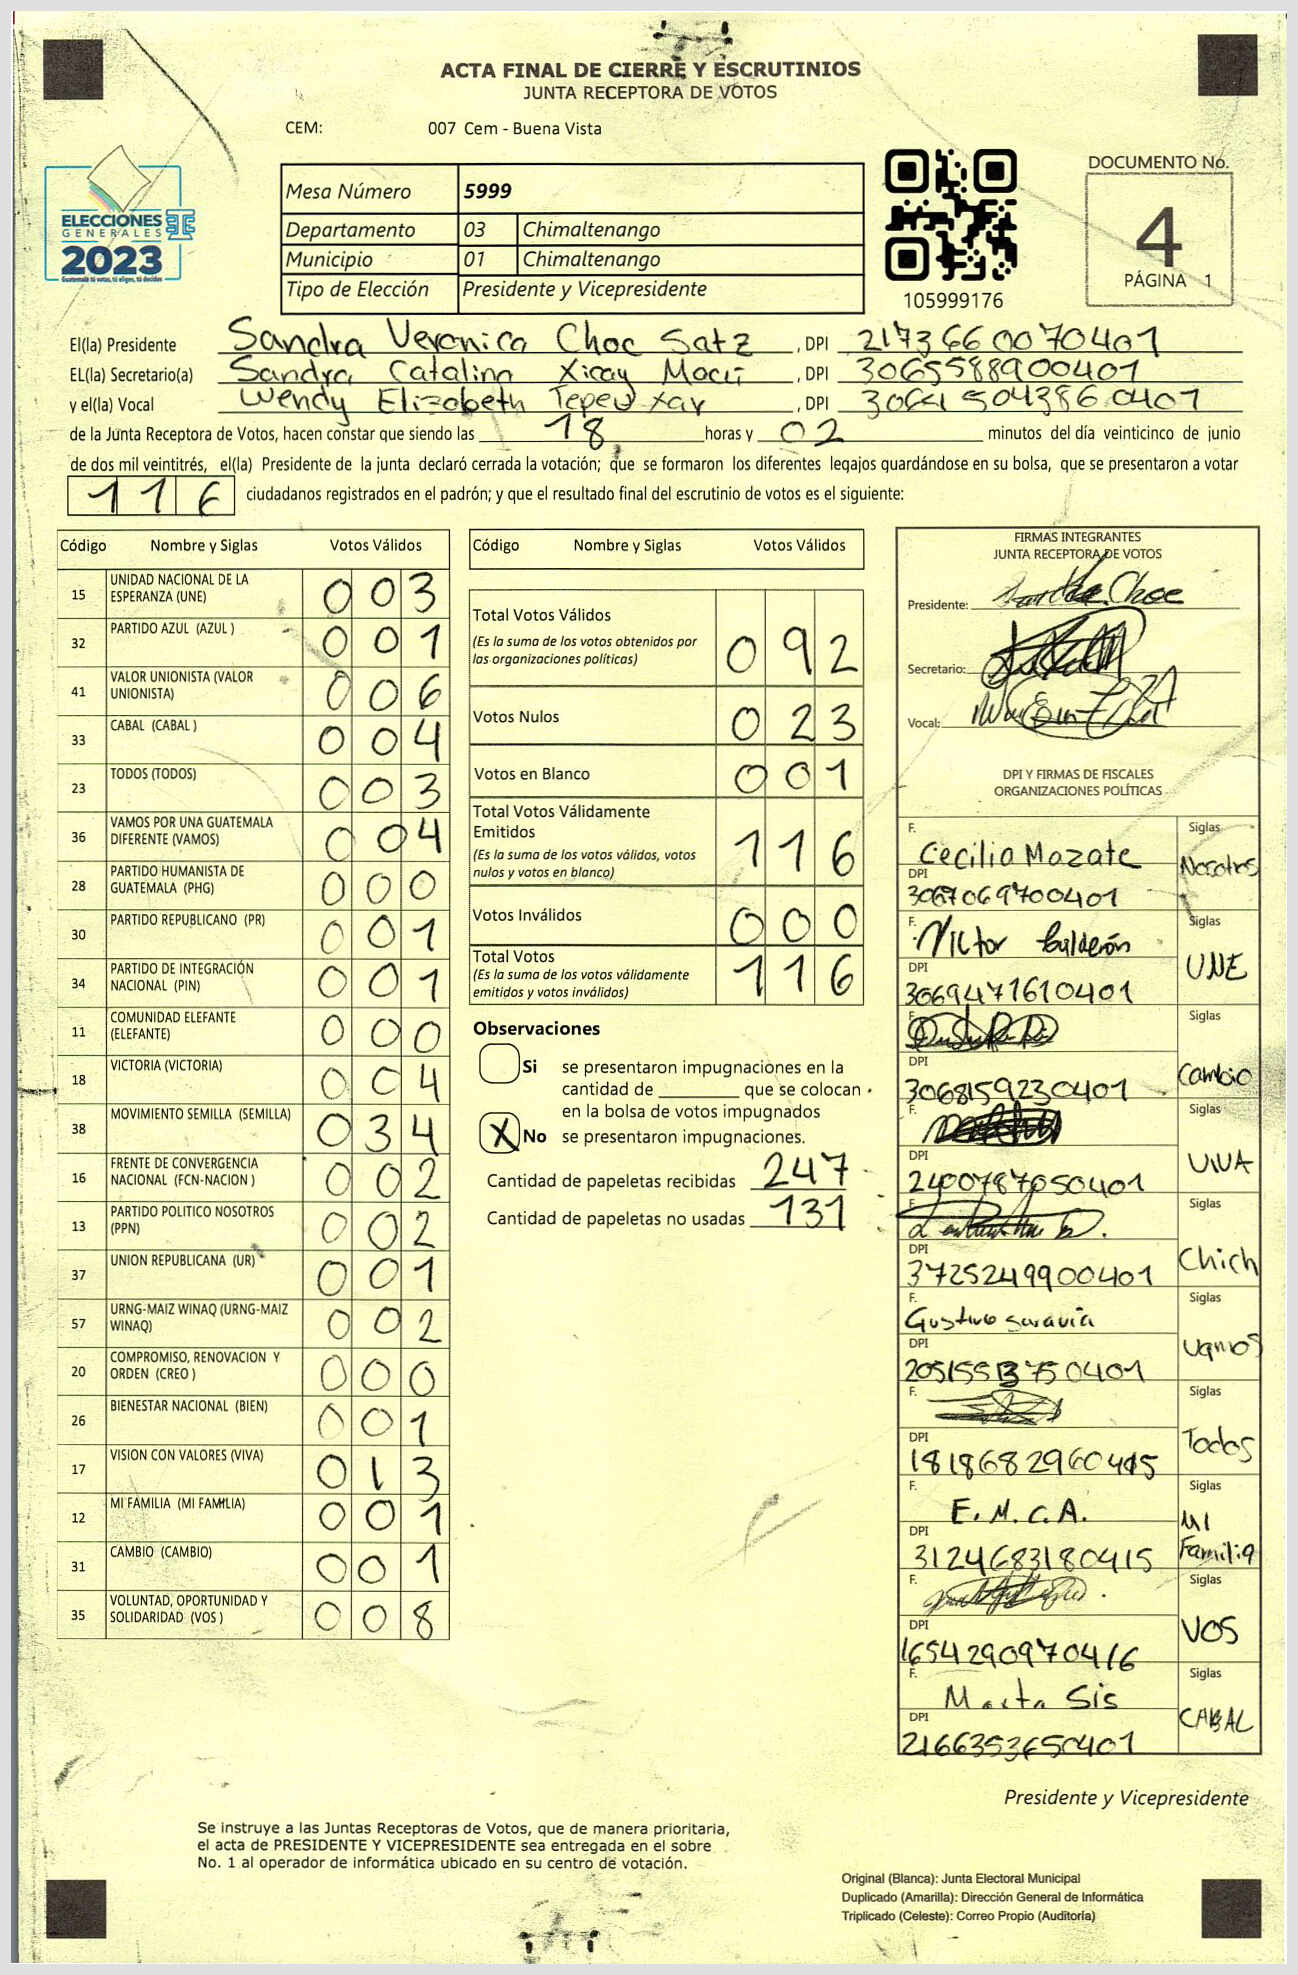 ACTA FINAL DE CIERRE Y ESCRUTINIOS
JUNTA RECEPTORA DE VOTOS
CEM: 007 Cem - Buena Vista
ELECCIONES
GENERALES
2023
Guatemala tú votas, tú eliges, tú decides
Mesa Número 5999
Departamento 03 Chimaltenango
Municipio 01 Chimaltenango
Tipo de Elección Presidente y Vicepresidente
105999176
DOCUMENTO No.
4
PÁGINA 1
El(la) Presidente Sandra Veronica Choc Satz, DPI 2173660070401
EL(la) Secretario(a) Sandra Catalina Xicay Macú, DPI 3065588900401
y el(la) Vocal Wendy Elizabeth Tepeu Xar, DPI 30645043860401
de la Junta Receptora de Votos, hacen constar que siendo las 18 horas y 02 minutos del día veinticinco de junio
de dos mil veintitrés, el(la) Presidente de la junta declaró cerrada la votación; que se formaron los diferentes legajos quardándose en su bolsa, que se presentaron a votar
116 ciudadanos registrados en el padrón; y que el resultado final del escrutinio de votos es el siguiente:
Código Nombre y Siglas Votos Válidos
15 UNIDAD NACIONAL DE LA ESPERANZA (UNE) 003
32 PARTIDO AZUL (AZUL ) 001
41 VALOR UNIONISTA (VALOR UNIONISTA) 006
33 CABAL (CABAL ) 004
23 TODOS (TODOS) 003
36 VAMOS POR UNA GUATEMALA DIFERENTE (VAMOS) 004
28 PARTIDO HUMANISTA DE GUATEMALA (PHG) 000
30 PARTIDO REPUBLICANO (PR) 001
34 PARTIDO DE INTEGRACIÓN NACIONAL (PIN) 001
11 COMUNIDAD ELEFANTE (ELEFANTE) 000
18 VICTORIA (VICTORIA) 004
38 MOVIMIENTO SEMILLA (SEMILLA) 034
16 FRENTE DE CONVERGENCIA NACIONAL (FCN-NACION ) 002
13 PARTIDO POLITICO NOSOTROS (PPN) 002
37 UNION REPUBLICANA (UR) 001
57 URNG-MAIZ WINAQ (URNG-MAIZ WINAQ) 002
20 COMPROMISO, RENOVACION Y ORDEN (CREO ) 000
26 BIENESTAR NACIONAL (BIEN) 001
17 VISION CON VALORES (VIVA) 013
12 MI FAMILIA (MI FAMILIA) 001
31 CAMBIO (CAMBIO) 001
35 VOLUNTAD, OPORTUNIDAD Y SOLIDARIDAD (VOS ) 008
Código Nombre y Siglas Votos Válidos
Total Votos Válidos 092
(Es la suma de los votos obtenidos por
las organizaciones políticas)
Votos Nulos 023
Votos en Blanco 001
Total Votos Válidamente
Emitidos 116
(Es la suma de los votos válidos, votos
nulos y votos en blanco)
Votos Inválidos 000
Total Votos 116
(Es la suma de los votos válidamente
emitidos y votos inválidos)
Observaciones
Si se presentaron impugnaciones en la
cantidad de ________ que se colocan
en la bolsa de votos impugnados
X No se presentaron impugnaciones.
Cantidad de papeletas recibidas 247
Cantidad de papeletas no usadas 131
FIRMAS INTEGRANTES
JUNTA RECEPTORA DE VOTOS
Presidente: Choc
Secretario:
Vocal:
DPI Y FIRMAS DE FISCALES
ORGANIZACIONES POLÍTICAS
F. Cecilia Mazate Siglas Nosotros
DPI 3067069700401
F. Victor Calderón Siglas UNE
DPI 3069471610401
F. Siglas Cambio
DPI 3068159230401
F. Siglas VIVA
DPI 2400787050401
F. Siglas Chich
DPI 3725249900401
F. Gustavo Saravia Siglas Vamos
DPI 20515513750401
F. Siglas Todos
DPI 1818682960415
F. E.M.C.A. Siglas MI Familia
DPI 3124683180415
F. Siglas VOS
DPI 1654290970416
F. Marta Sis Siglas CABAL
DPI 2166353650401
Presidente y Vicepresidente
Se instruye a las Juntas Receptoras de Votos, que de manera prioritaria,
el acta de PRESIDENTE Y VICEPRESIDENTE sea entregada en el sobre
No. 1 al operador de informática ubicado en su centro de votación.
Original (Blanca): Junta Electoral Municipal
Duplicado (Amarilla): Dirección General de Informática
Triplicado (Celeste): Correo Propio (Auditoría)